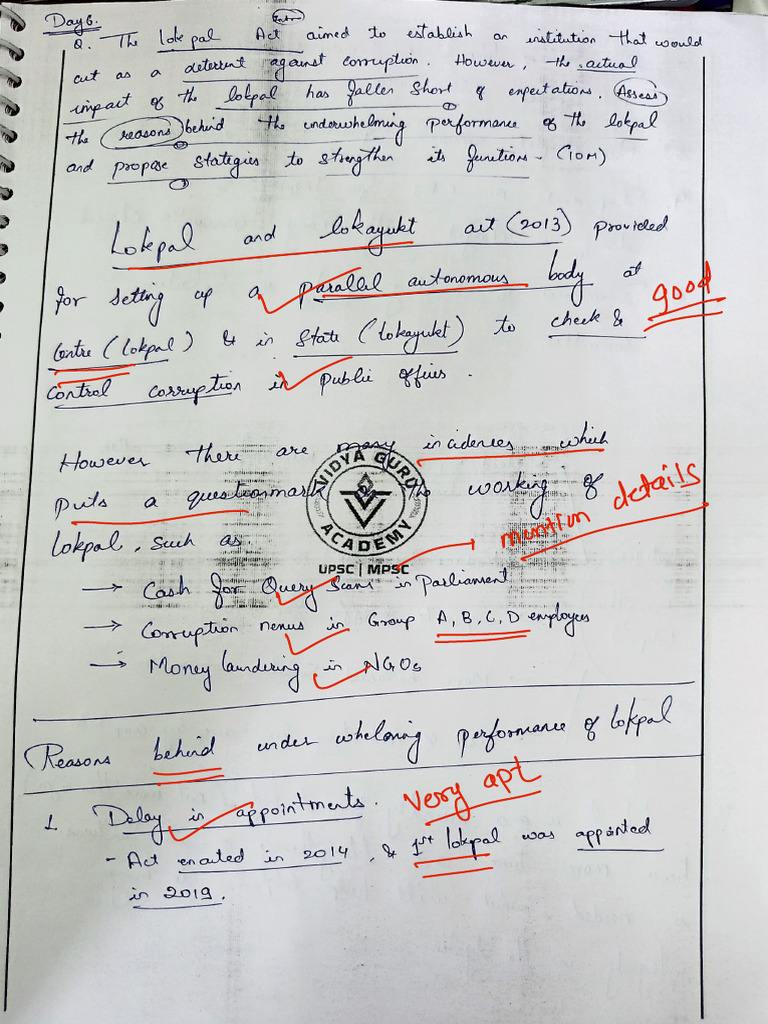 Day 6.
Intro
Q. The lok pal Act aimed to establish an institution that would
act as a deterrent against corruption. However, the actual
impact of the lokpal has fallen short of expectations. Assess
the reasons behind the underwhelming performance of the lokpal
and propose stategies to strengthen its functions - (10M)
Lokpal and lokayukt act (2013) provided
for setting up a parallel autonomous body at
good
Centre (Lokpal) & in State (Lokayukt) to check &
control corruption in public offices.
However there are many incidences which
puts a questionmark on the working of
lokpal, such as.
mention details
→ Cash for Query Scam in Parliament
→ Corruption nexus in Group A, B, C, D employees
→ Money laundering in NGOs
VIDYA GURU
ACADEMY
UPSC | MPSC
Reasons behind under whelming performance of lokpal
1. Delay in appointments.
very apt
- Act enacted in 2014, & 1st lokpal was appointed
in 2019.